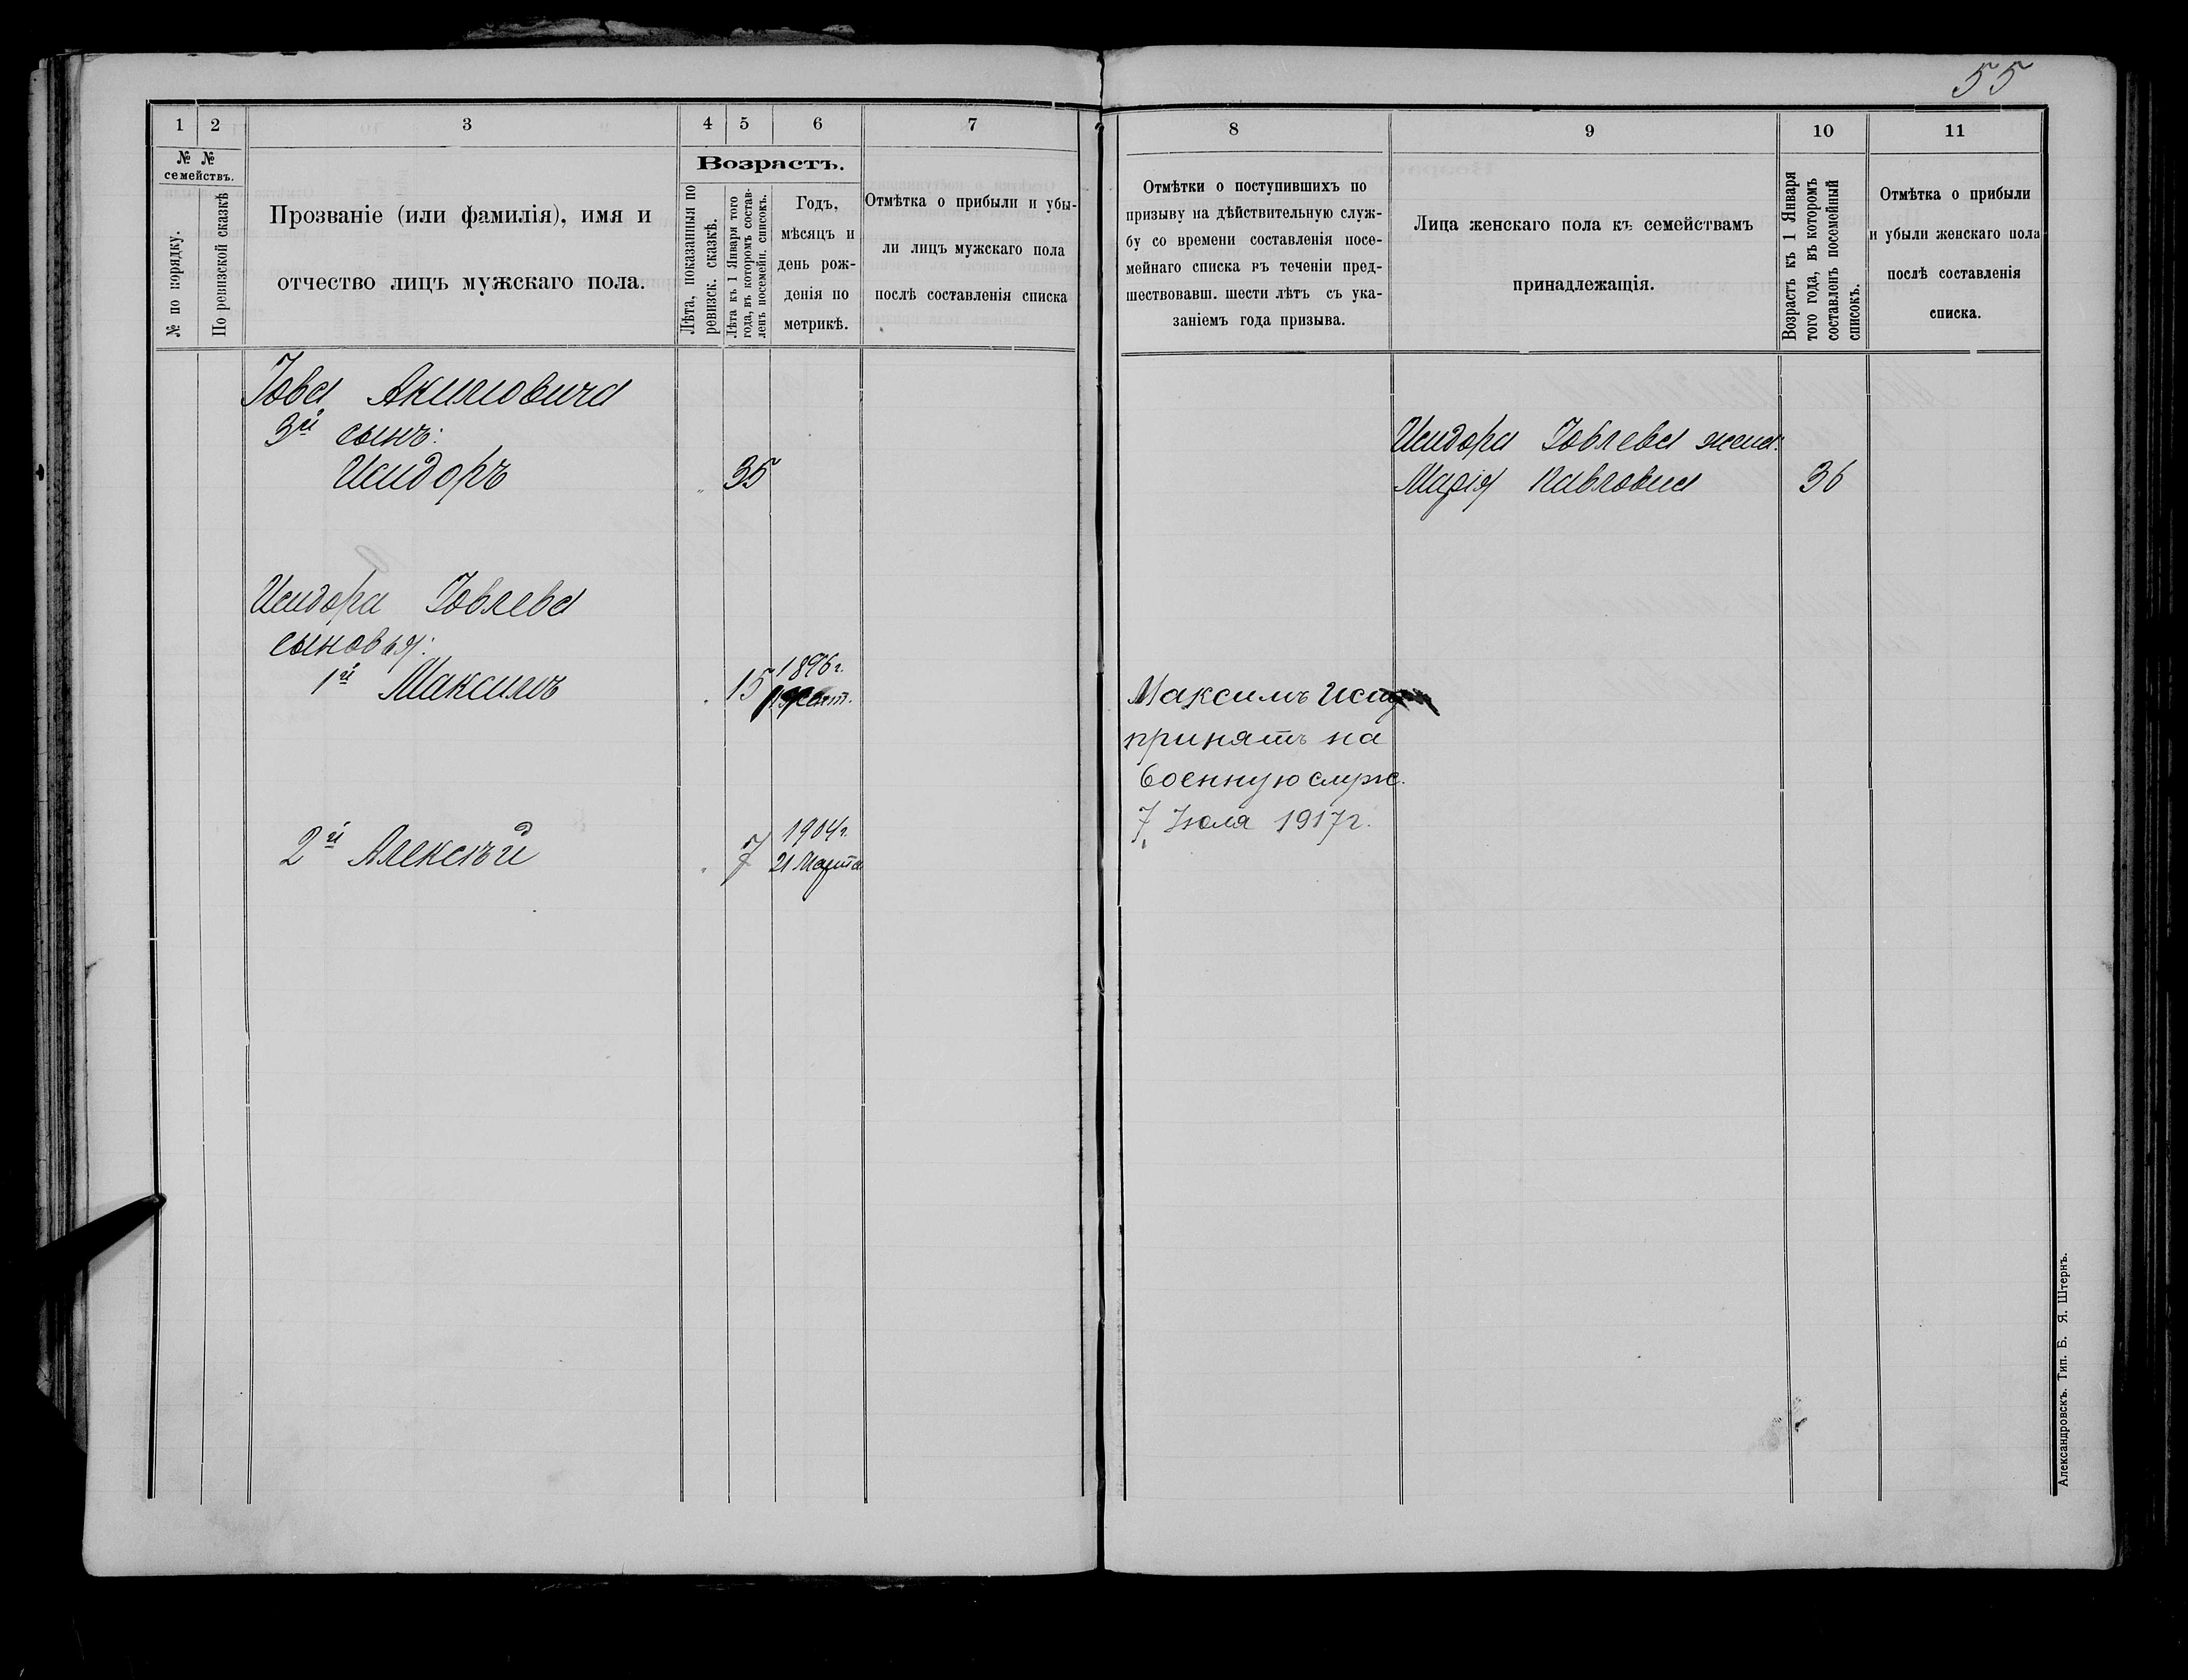 55
1 2 3 4 5 6 7
№ № семействъ.
№ по порядку.
По ревизской сказкѣ
Прозваніе (или фамилія), имя и
отчество лицъ мужскаго пола.
Возрастъ.
Лѣта, показанныя по
ревизск. сказкѣ.
Лѣта къ 1 Января того
года, въ которомъ состав-
ленъ посемейн. списокъ.
Годъ,
мѣсяцъ и
день рож-
денія по
метрикѣ.
Отмѣтка о прибыли и убы-
ли лицъ мужскаго пола
послѣ составленія списка
Іова Акимовича
3й сынъ:
Исидоръ " 35
Исидора Іовлева
сыновья:
1й Максимъ 15 1896 г.
2й Алексѣй 7 1904 г.
21 Марта
8 9 10 11
Отмѣтки о поступившихъ по
призыву на дѣйствительную служ-
бу со времени составленія посе-
мейнаго списка въ теченіи пред-
шествовавш. шести лѣтъ съ ука-
заніемъ года призыва.
Лица женскаго пола къ семействамъ
принадлежащія.
Возрастъ къ 1 Января
того года, въ которомъ
составленъ посемейный
списокъ.
Отмѣтка о прибыли
и убыли женскаго пола
послѣ составленія
списка.
Исидора Іовлева жена:
Марія Павловна 36
Максимъ
принятъ на
военную служ.
7 Іюля 1917 г.
Александровскъ. Тип. Б. Я. Штернъ.